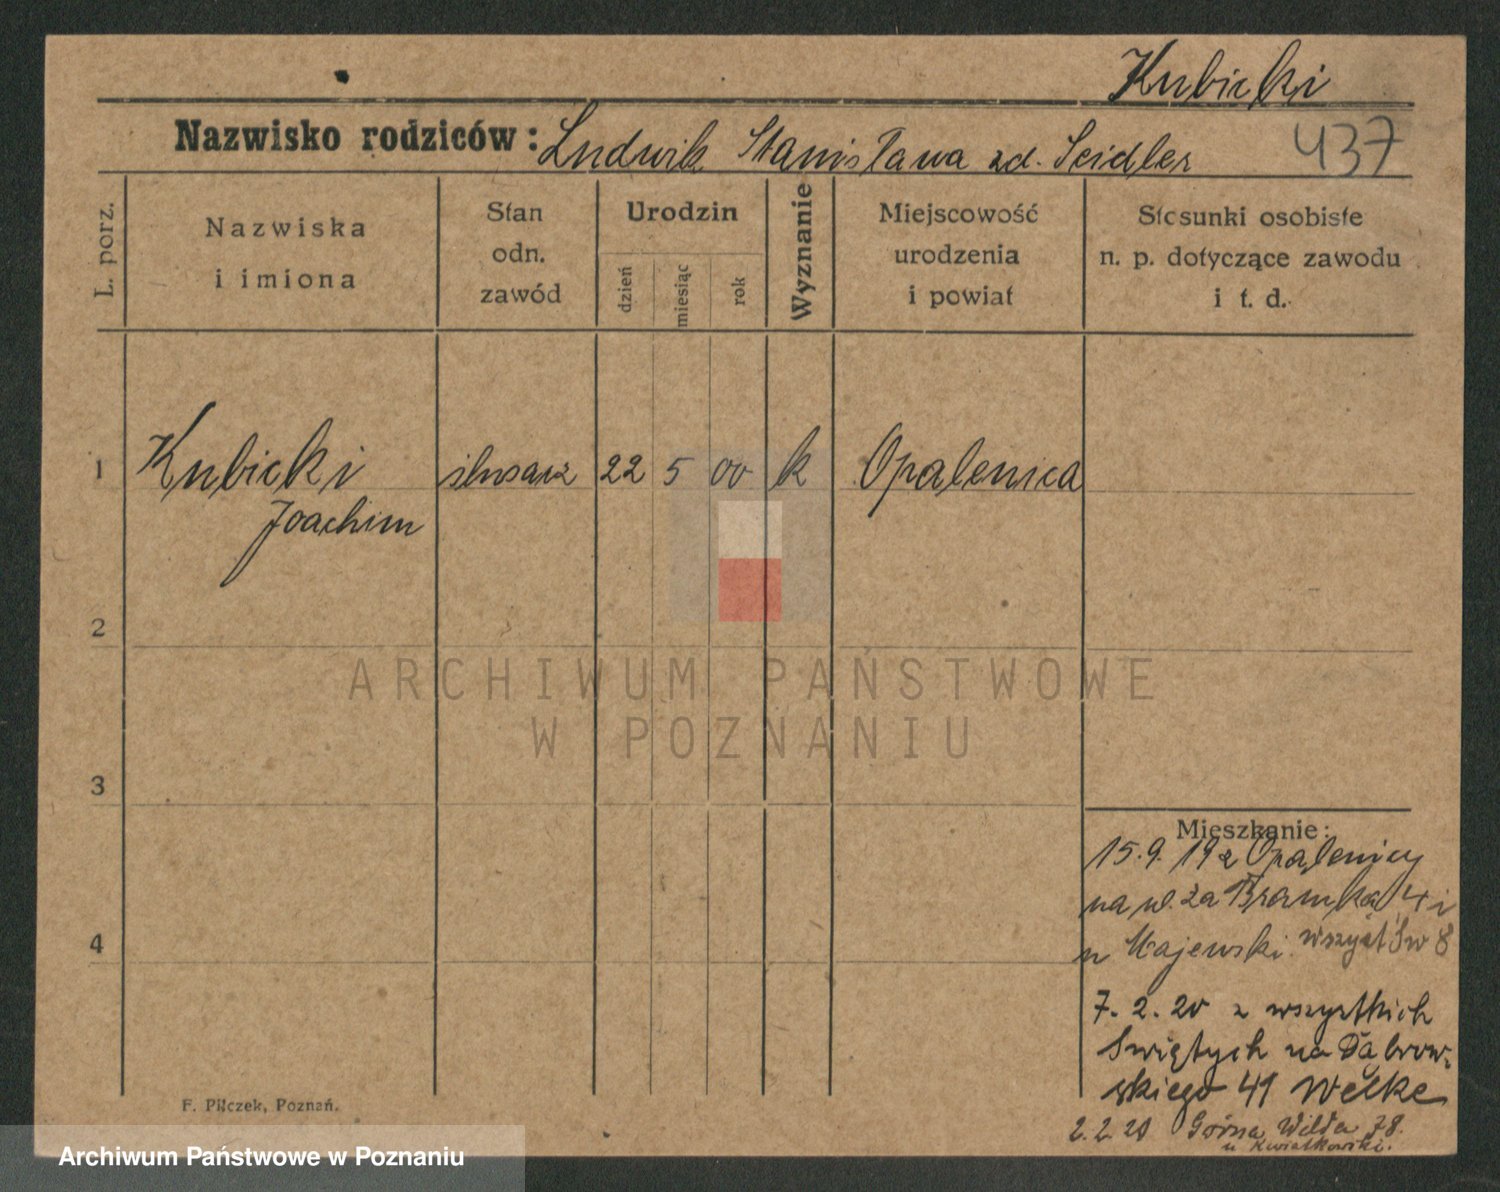 Kubicki
Nazwisko rodziców: Ludwik Stanisława zd. Seidler 437
L. porz.
Nazwiska
i imiona
Stan
odn.
zawód
Urodzin
dzień
miesiąc
rok
Wyznanie
Miejscowość
urodzenia
i powiat
Stosunki osobiste
n. p. dotyczące zawodu
i t. d.
1 Kubicki ślusarz 22 5 00 k Opalenica
Joachim
2
3
4
ARCHIWUM PAŃSTWOWE
W POZNANIU
Mieszkanie:
15.9.19 z Opalenicy
na w. za Bramką 4 i
u Majewski. wszyst Św 8
7. 2. 20 z wszystkich
Swiętych na Dąbrow-
skiego 41 Welke
2.2.21 Górna Wilda 78.
u Kwiatkowski.
F. Pilczek, Poznań.
Archiwum Państwowe w Poznaniu